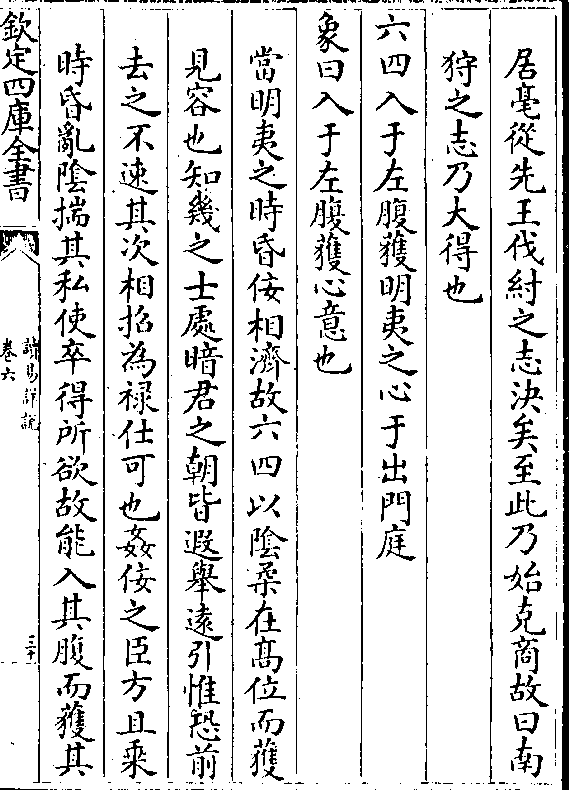 居亳從先王伐紂之志決矣至此乃始克商故曰南
狩之志乃大得也
六四入于左腹獲明夷之心于出門庭
象曰入于左腹獲心意也
當明夷之時昏佞相濟故六四以陰柔在髙位而獲
見容也知幾之士處暗君之朝皆遐舉逺引惟恐前
去之不速其次相招為禄仕可也姦佞之臣方且乗
時昏亂陰揣其私使卒得所欲故能入其腹而獲其
欽定四庫全書
讀易詳說
卷六
三十